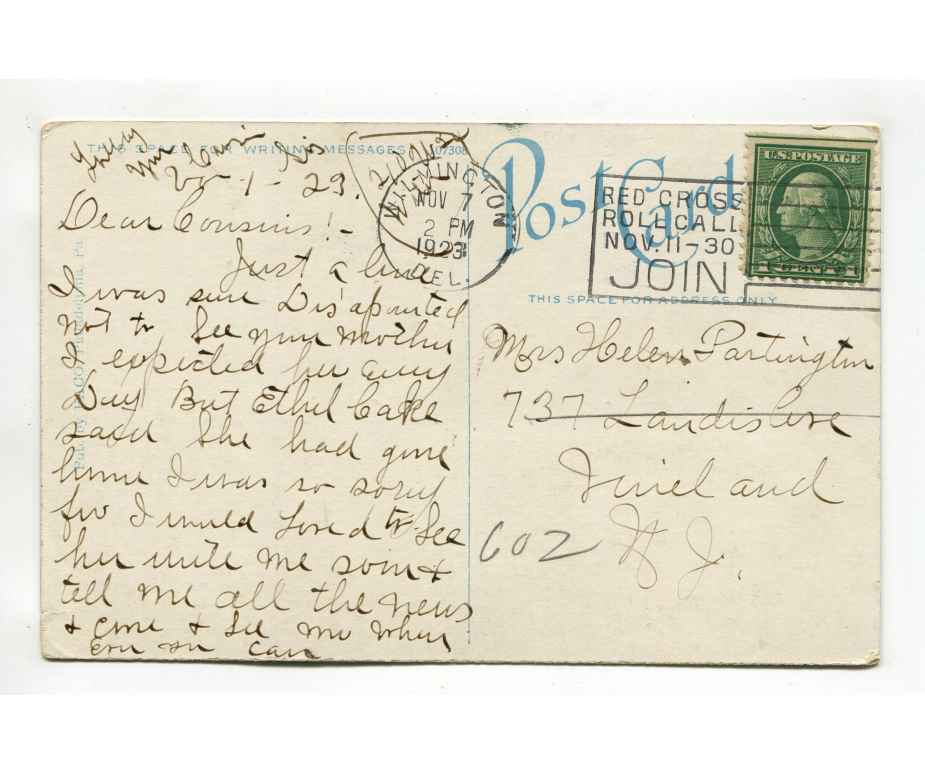 THIS SPACE FOR WRITING MESSAGES
1 - 23
Dear Cousins! -
Just a line
I was sure Disapointed
Not to See your Mother
I expected her any
Day But Ethel Cake
said She had gone
home I was so sorry
for I would Loved to See
her write me soon &
tell me all the news
& come & See me when
you can
WILMINGTON
NOV 7
2 PM
1923
DEL.
Post Card
RED CROSS
ROLL CALL
NOV. 11-30
JOIN
U.S. POSTAGE
1 CENT 1
THIS SPACE FOR ADDRESS ONLY
Mrs Helen Partington
737 Landis Ave
Vineland
602
N J.